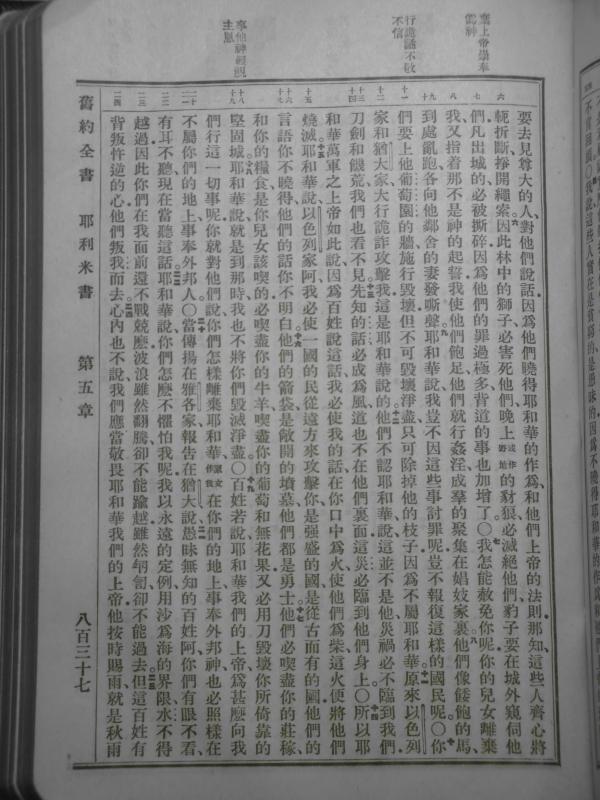 棄上帝崇奉
假神
行詭譎不敬
不信
事他神輕視
主恩
六
七
八
九
十
十一
十二
十三
十四
十五
十六
十七
十八
十九
二十
二一
二二
二三
二四
要去見尊大的人對他們說話因爲他們曉得耶和華的作爲和他們上帝的法則那知這些人齊心將
軛折斷掙開繩索因此林中的獅子必害死他們晚上或作野地的豺狼必滅絕他們豹子要在城外窺伺他
們凡出城的必被撕碎因爲他們的罪過極多背道的事也加增了〇我怎能赦免你呢你的兒女離棄
我又指着那不是神的起誓我使他們飽足他們就行姦淫成羣的聚集在娼妓家裏他們像餧飽的馬
到處亂跑各向他鄰舍的妻發嘶聲耶和華說我豈不因這些事討罪呢豈不報復這樣的國民呢〇你
們要上他葡萄園的牆施行毀壞但不可毀壞淨盡只可除掉他的枝子因爲不屬耶和華原來以色列
家和猶大家大行詭詐攻擊我這是耶和華說的他們不認耶和華說這並不是他災禍必不臨到我們
刀劍和饑荒我們也看不見先知的話必成爲風道也不在他們裏面這災必臨到他們身上〇所以耶
和華萬軍之上帝如此說因爲百姓說這話我必使我的話在你口中爲火使他們爲柴這火便將他們
燒滅耶和華說以色列家阿我必使一國的民從遠方來攻擊你是強盛的國是從古而有的國他們的
言語你不曉得他們的話你不明白他們的箭袋是敞開的墳墓他們都是勇士他們必喫盡你的莊稼
和你的糧食是你兒女該喫的必喫盡你的牛羊喫盡你的葡萄和無花果又必用刀毀壞你所倚靠的
堅固城耶和華說就是到那時我也不將你們毀滅淨盡〇百姓若說耶和華我們的上帝爲甚麼向我
們行這一切事呢你就對他們說你們怎樣離棄耶和華原文作我在你們的地上事奉外邦神也必照樣在
不屬你們的地上事奉外邦人〇當傳揚在雅各家報告在猶大說愚昧無知的百姓阿你們有眼不看
有耳不聽現在當聽這話耶和華說你們怎麼不懼怕我呢我以永遠的定例用沙爲海的界限水不得
越過因此你們在我面前還不戰兢麼波浪雖然翻騰卻不能踰越雖然匉訇卻不能過去但這百姓有
背叛忤逆的心他們叛我而去心內也不說我們應當敬畏耶和華我們的上帝他按時賜雨就是秋雨
舊約全書 耶利米書 第五章 八百三十七